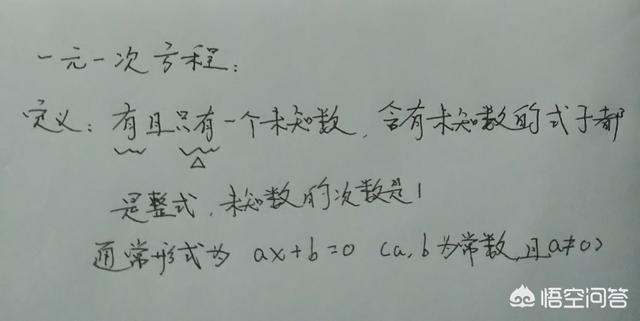 一元一次方程：
定义：有且只有一个未知数，含有未知数的式子都
是整式，未知数的次数是1
通常形式为 ax+b=0 (a,b为常数,且a≠0)
悟空问答